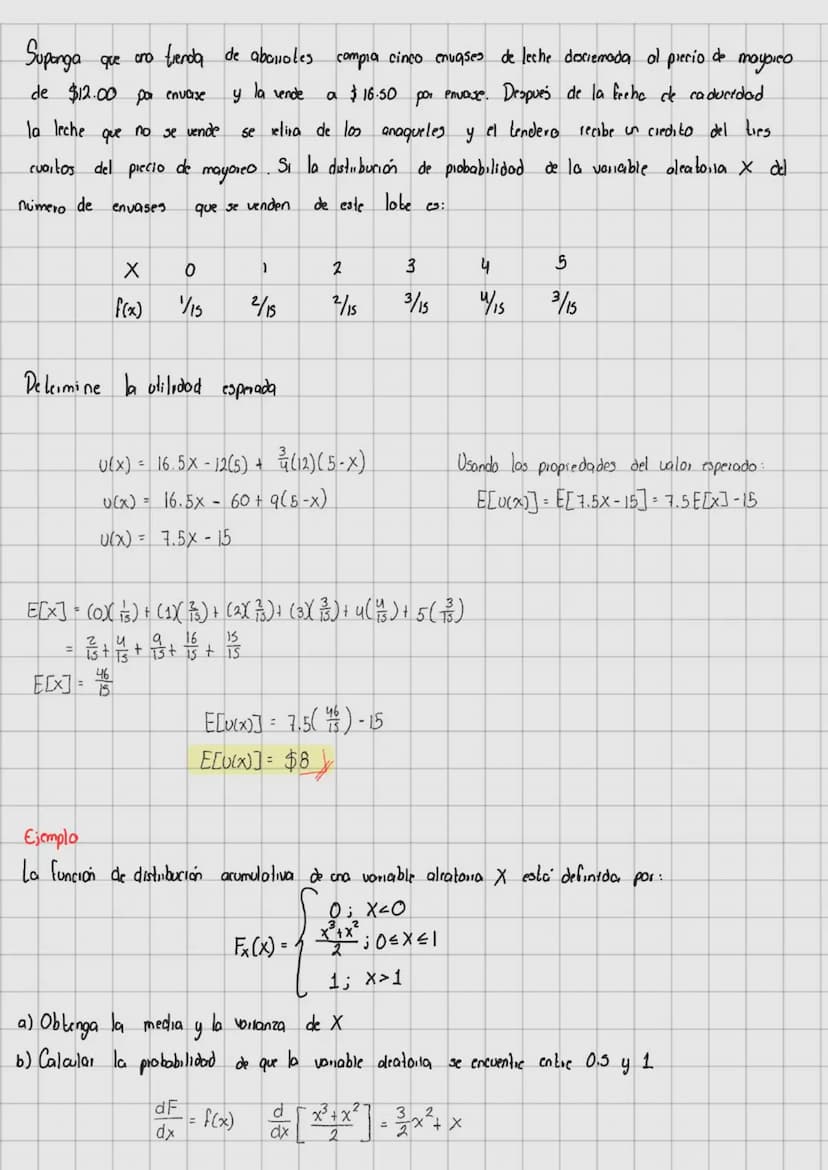 Suponga que una tienda de abarrotes compra cinco envases de leche descremada al precio de mayoreo
de $12.00 por envase y la vende a $16.50 por envase. Después de la fecha de caducidad
la leche que no se vende se retira de los anaqueles y el tendero recibe un crédito del tres
cuartos del precio de mayoreo. Si la distribución de probabilidad de la variable aleatoria X del
número de envases que se venden de este lote es:
X 0 1 2 3 4 5
f(x) 1/15 2/15 2/15 3/15 4/15 3/15
Determine la utilidad esperada
U(x) = 16.5X - 12(5) + 3/4(12)(5-X)
U(x) = 16.5X - 60 + 9(5-X)
U(x) = 7.5X - 15
Usando las propiedades del valor esperado:
E[U(x)] = E[7.5X-15] = 7.5E[X]-15
E[X] = (0)(1/15) + (1)(2/15) + (2)(2/15) + (3)(3/15) + 4(4/15) + 5(3/15)
= 2/15 + 4/15 + 9/15 + 16/15 + 15/15
E[X] = 46/15
E[U(x)] = 7.5(46/15) - 15
E[U(x)] = $8
Ejemplo
La función de distribución acumulativa de una variable aleatoria X está definida por:
0; X<0
Fx(X) = { x³+x²/2 ; 0≤X≤1
1; X>1
a) Obtenga la media y la varianza de X
b) Calcular la probabilidad de que la variable aleatoria se encuentre entre 0.5 y 1
dF/dx = f(x) d/dx [x³+x²/2] = 3/2x² + x